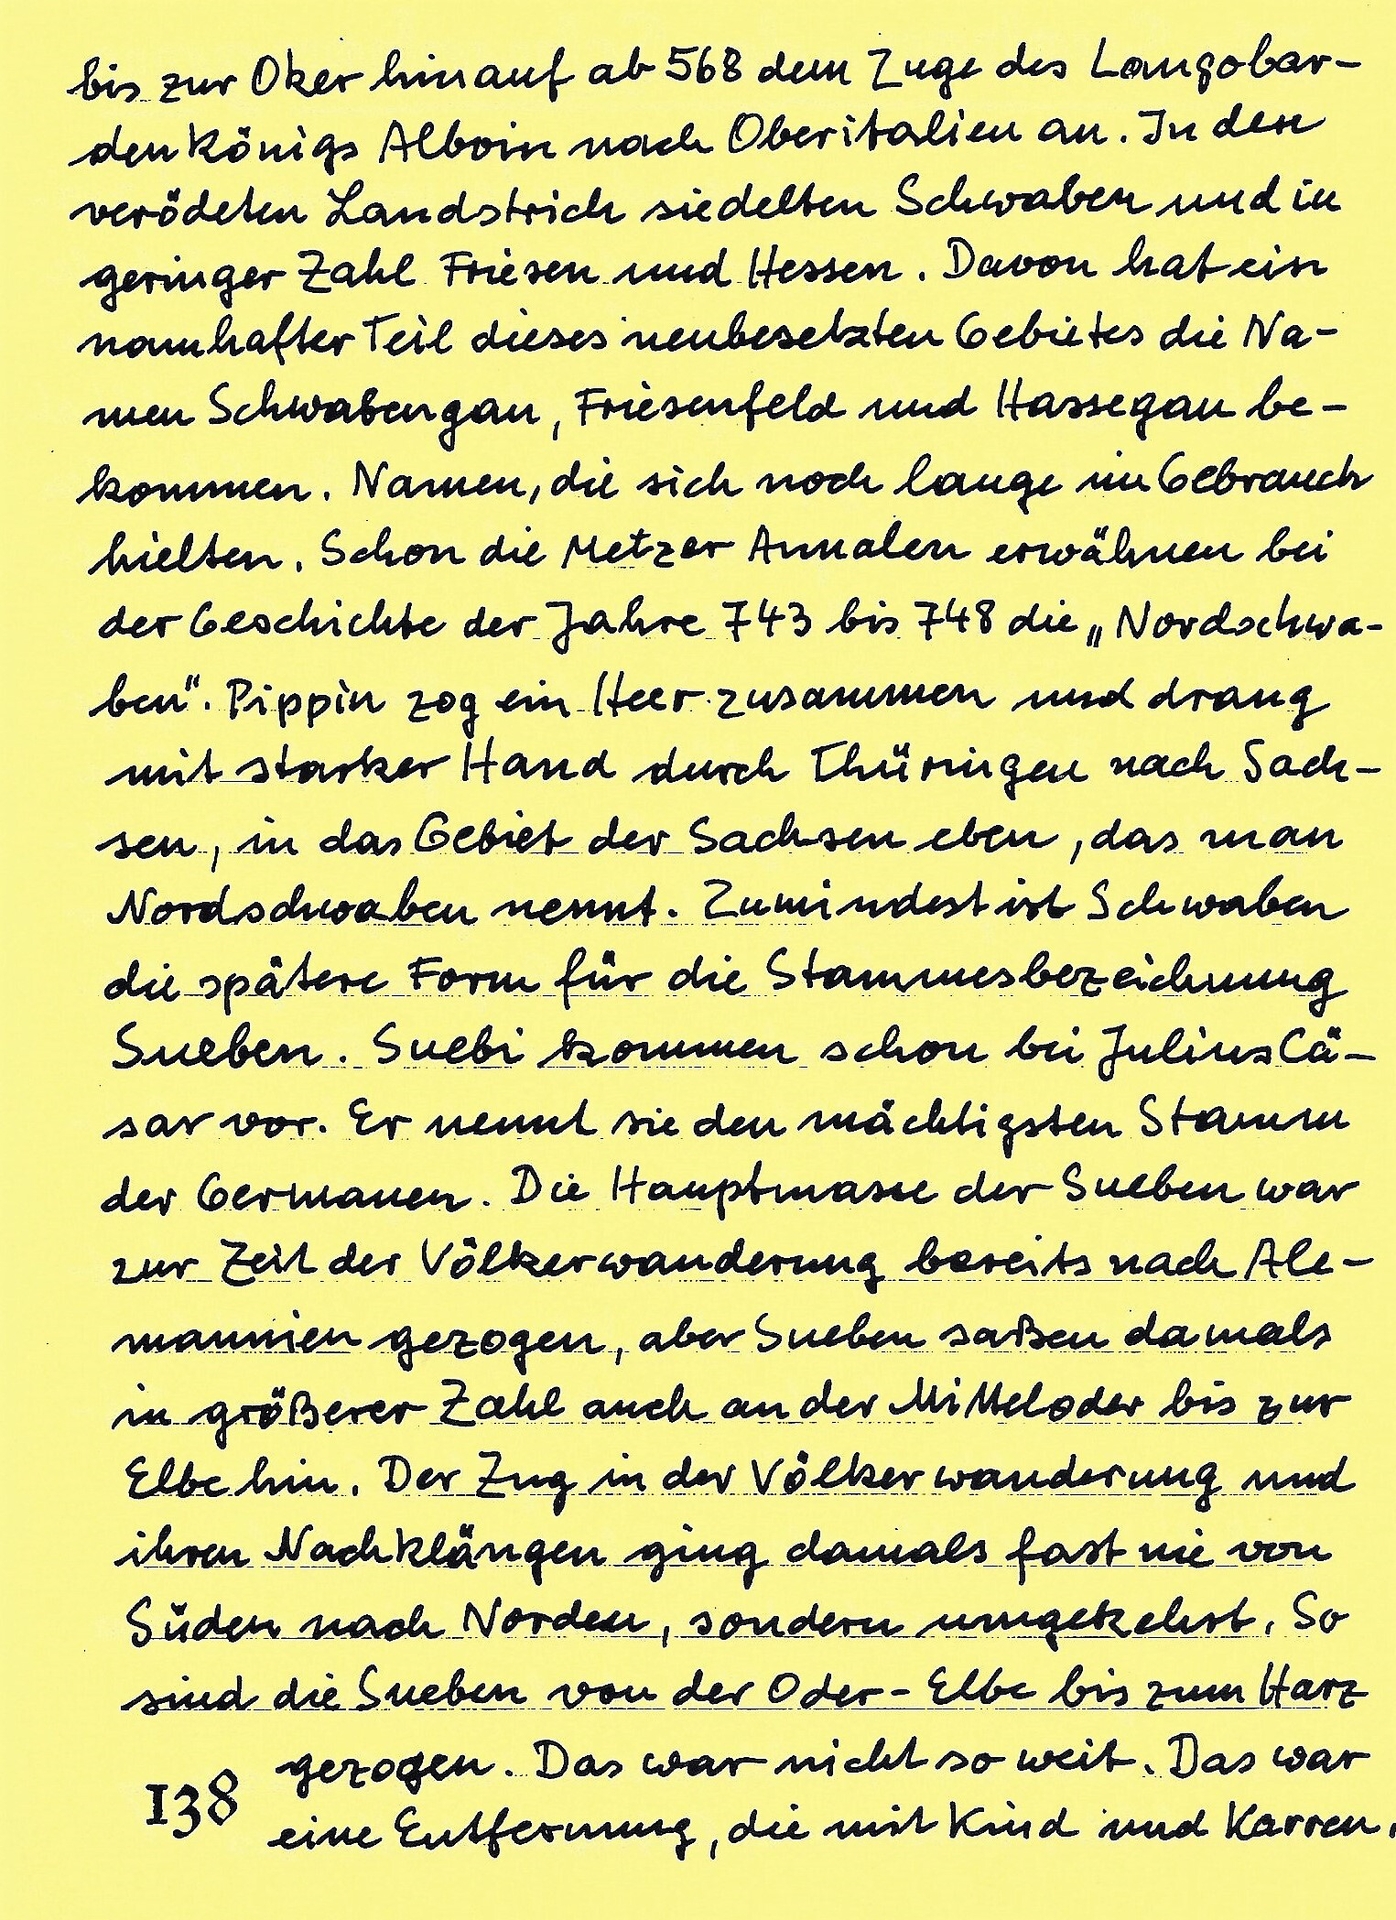 bis zur Oker hinauf ab 568 dem Zuge des Langobar-
denkönigs Alboin nach Oberitalien an. In den
verödeten Landstrich siedelten Schwaben und in
geringer Zahl Friesen und Hessen. Davon hat ein
namhafter Teil dieses neubesetzten Gebietes die Na-
men Schwabengau, Friesenfeld und Hassegau be-
kommen. Namen, die sich noch lange im Gebrauch
hielten. Schon die Metzer Annalen erwähnen bei
der Geschichte der Jahre 743 bis 748 die „Nordschwa-
ben". Pippin zog ein Heer zusammen und drang
mit starker Hand durch Thüringen nach Sach-
sen, in das Gebiet der Sachsen eben, das man
Nordschwaben nennt. Zumindest ist Schwaben
die spätere Form für die Stammesbezeichnung
Sueben. Suebi kommen schon bei Julius Cä-
sar vor. Er nennt sie den mächtigsten Stamm
der Germanen. Die Hauptmasse der Sueben war
zur Zeit der Völkerwanderung bereits nach Ale-
mannien gezogen, aber Sueben saßen damals
in größerer Zahl auch an der Mitteloder bis zur
Elbe hin. Der Zug in der Völkerwanderung und
ihren Nachklängen ging damals fast nie von
Süden nach Norden, sondern umgekehrt. So
sind die Sueben von der Oder-Elbe bis zum Harz
gezogen. Das war nicht so weit. Das war
138 eine Entfernung, die mit Kind und Karren,